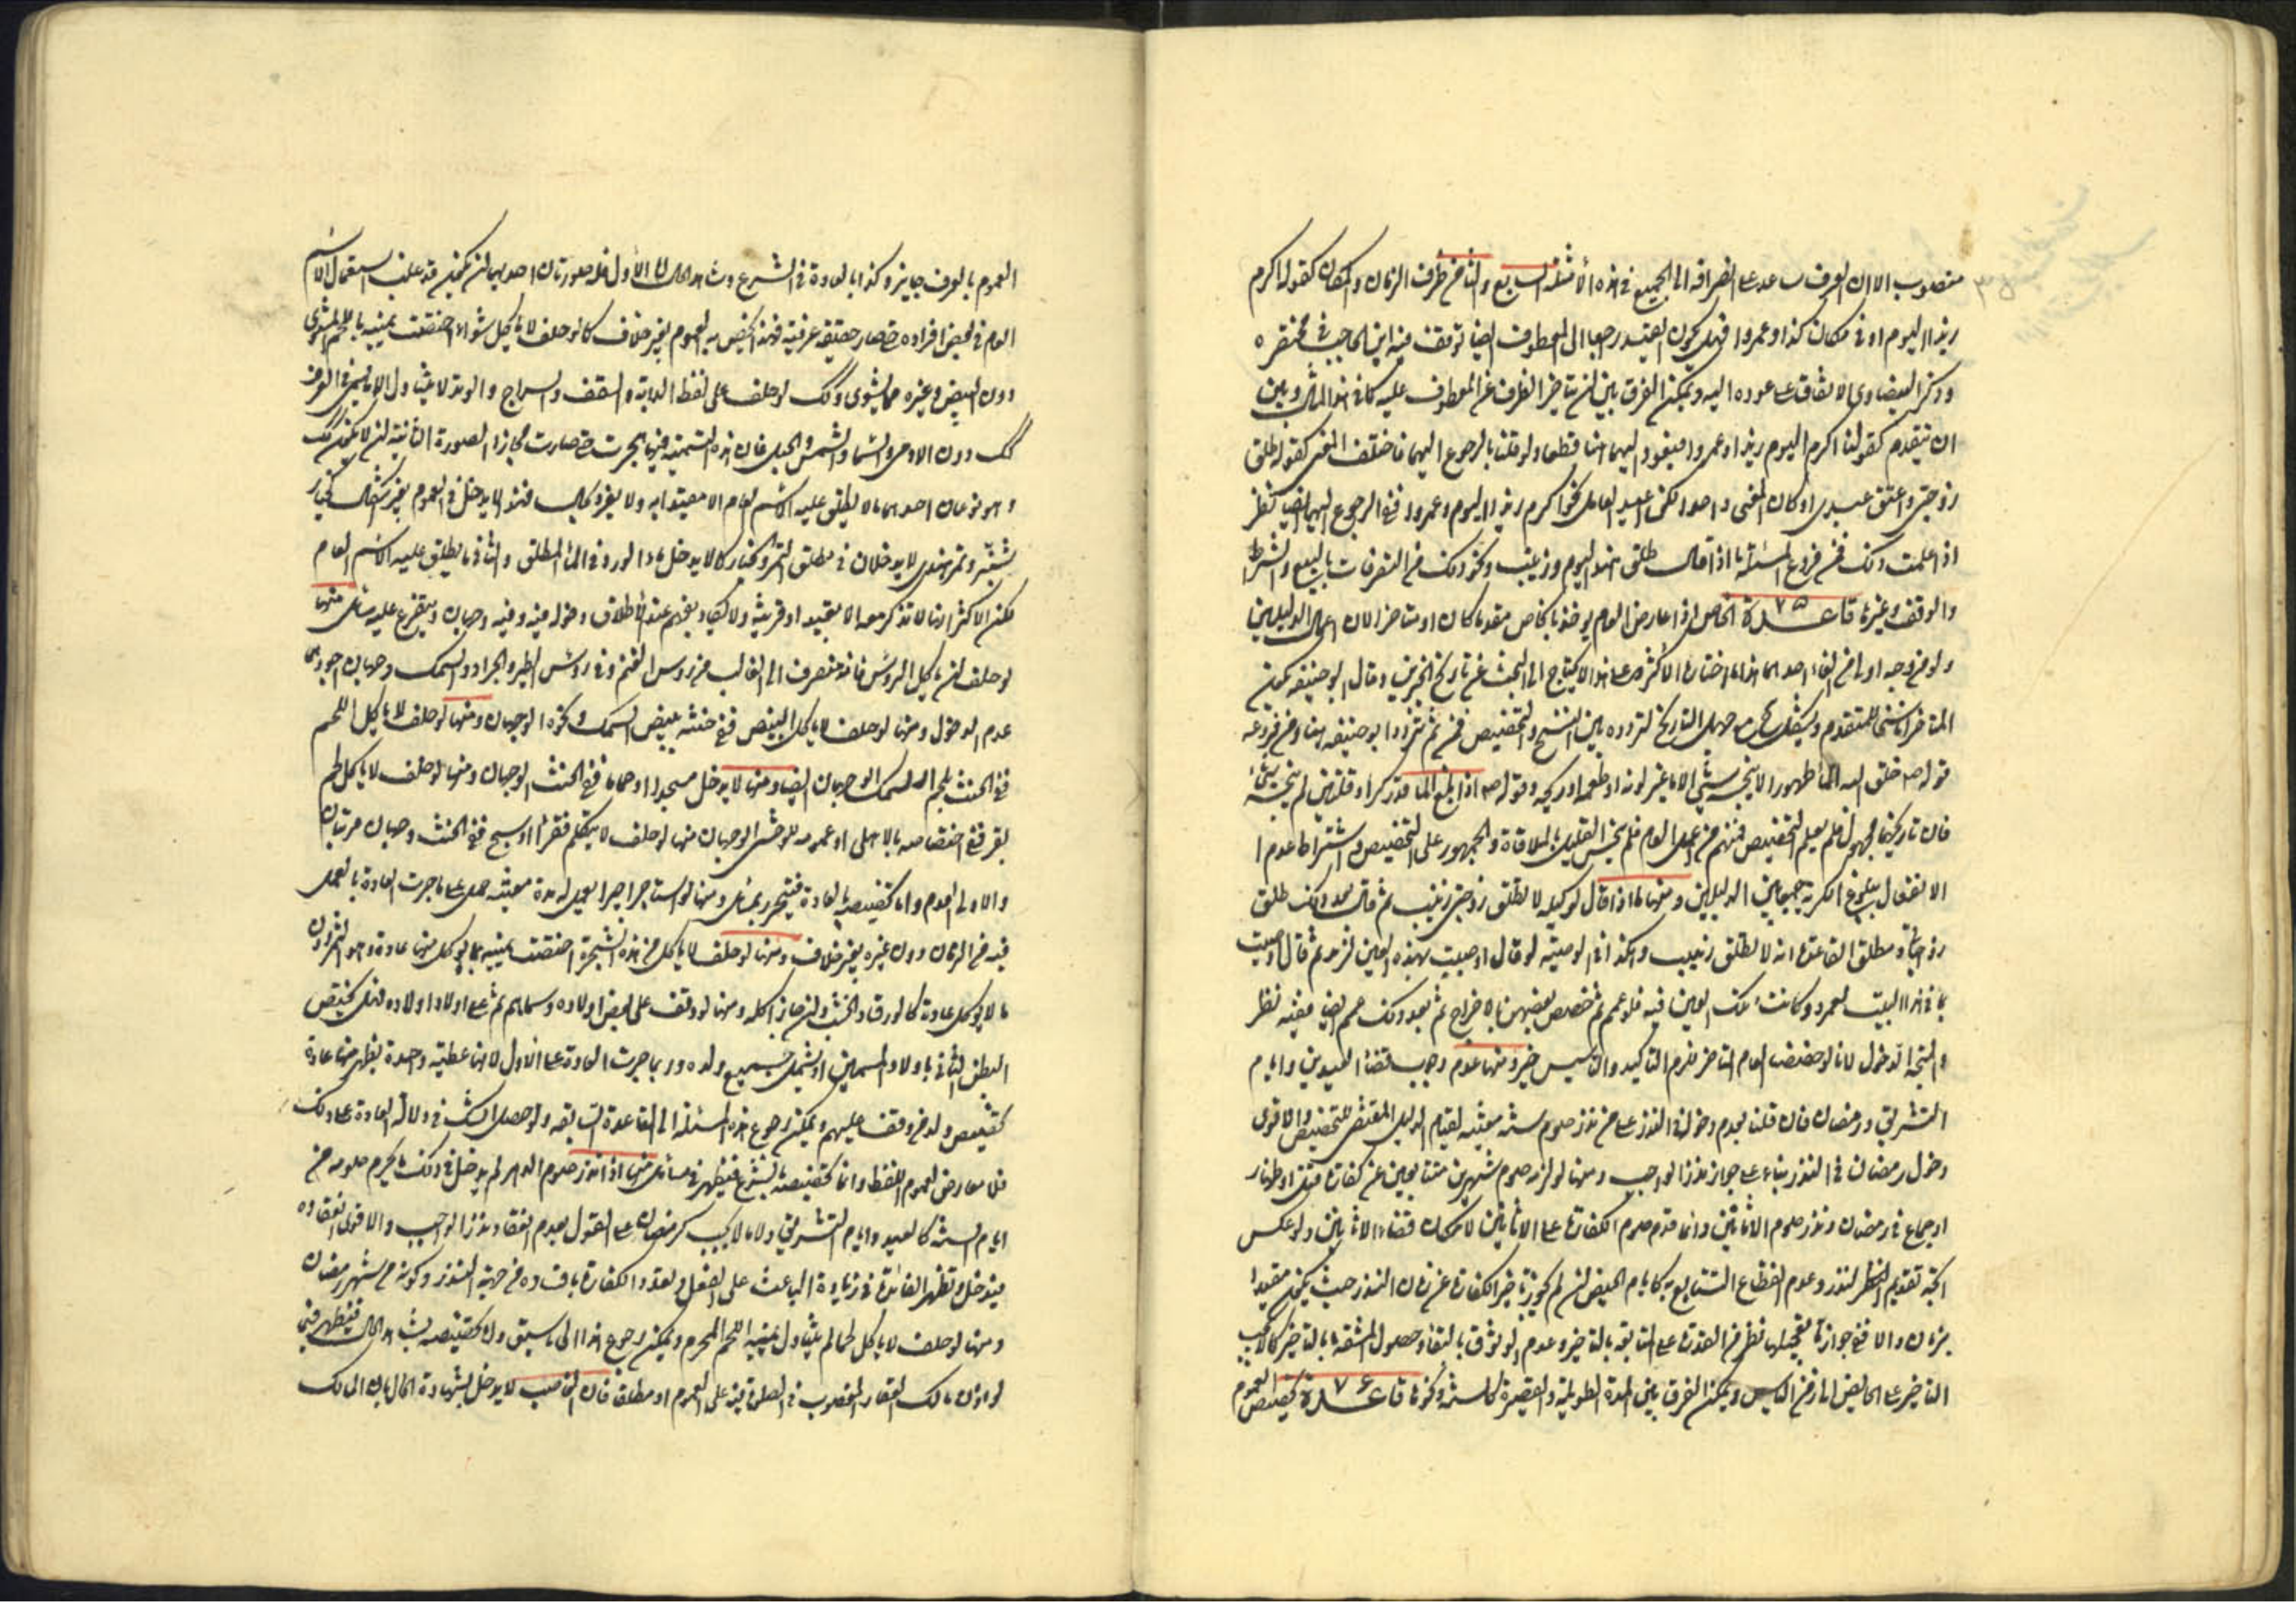 منصوب الا ان العرف ساعد على انصرافه الى الجميع في هذه الأمثلة السابع والثامن ظرف الزمان والمكان كقوله اكرم
زيدا اليوم او في مكان كذا وعمروا فهل يكون القيد راجعا الى المعطوف ايضا توقف فيه ابن الحاجب في مختصره
وذكر البيضاوي الاتفاق على عوده اليه ويمكن الفرق بين ان يتاخر الظرف عن المعطوف عليه كما في هذا المثال وبين
ان يتقدم كقولنا اكرم اليوم زيدا وعمروا فيعود اليهما هنا قطعا ولو قلنا بالرجوع اليهما فاختلف المعنى كقوله طلق
زوجتي واعتق عبيدي او كان المعنى واحدا لكن اعيد العامل نحو اكرم زيدا اليوم وعمروا ففي الرجوع اليهما ايضا نظر
اذا علمت ذلك فمن فروع المسئلة ما اذا قال طلق هندا اليوم وزينب ونحو ذلك من التصرفات بالبيع والشرط
والوقف وغيرها قاعدة ٧٥ الخاص اذا عارض العام يؤخذ بالخاص مقدما كان او متاخرا لان اعمال الدليلين
ولو من وجه اولى من الغاء احدهما هذا ما اختاره الأكثر وعلى هذا لا يحتاج الى البحث عن تاريخ الخبرين وقال ابو حنيفة يكون
المتاخر ناسخا للمتقدم ويشكل مع جهل التاريخ لتردده بين النسخ والتخصيص فمن ثم تردد ابو حنيفة هنا ومن فروعه
قوله ص خلق الله الماء طهورا لا ينجسه شيئ الا ما غير لونه او طعمه او ريحه وقوله ص اذا بلغ الماء قدر كر او قلتين لم ينجسه شيئ
فان تاريخهما مجهول فلم يعلم التخصيص فمنهم من اعمل العام فلم ينجس القليل بالملاقاة والجمهور على التخصيص واشتراط عدم ا
الانفعال ببلوغ الكرية جمعا بين الدليلين ومنها ما اذا قال لوكيله لا تطلق زوجتي زينب ثم قال بعد ذلك طلق
زوجاتي ومطلق القاعدة انه لا تطلق زينب وهكذا في الوصية لو قال اوصيت بهذه العين لزيد ثم قال اوصيت
بما في هذا البيت لعمرو وكانت تلك العين فيه فلو عمم ثم خصص بعضهن بالاخراج ثم بعد ذلك عمم ايضا ففيه نظر
والمتجه الدخول لانا لو خصصنا العام المتاخر لزم التاكيد والتاسيس خير ومنها عدم وجوب قضاء العيدين وايام
التشريق ورمضان فان قلنا بعدم دخوله في النذر على من نذر صوم سنة معينة لقيام الدليل المقتضي للتخصيص والاقوى
دخول رمضان في النذر بناء على جواز نذر الواجب ومنها لو لزمه صوم شهرين متتابعين عن كفارة قتل او ظهار
او جماع في رمضان ونذر صوم الاثانين وانما قدم صوم الكفارة على الاثانين لامكان قضاء الاثانين ولو عكس
اتجه تقديم النظر لنذر وعدم انقطاع التتابع به كايام الحيض ان لم يجوز تاخير الكفارة عن زمان النذر حيث يكون مقيدا
بزمان والا ففي جوازه تعجيلها نظر من القدرة على التابع بالتاخير وعدم الوثوق بالبقاء وحصول المشقة بالتاخير كما لا يجب
التاخير على الحائض الى زمن الياس ويمكن الفرق بين المدة الطويلة والقصيرة كالسنة ونحوها قاعدة ٧٦ تخصيص العموم
العموم بالعرف جايز وكذا بالعادة في الشرع وشاهد الحال اما الأول فله صورتان احديهما ان يكون قد غلب استعمال الاسم
العام في بعض افراده حتى صار حقيقة عرفية فهذا يخص به العموم بغير خلاف كما لو حلف لا ياكل شواء اختصت يمينه باللحم المشوي
دون البيض وغيره مما يشوى وكذلك لو حلف على لفظ الدابة والسقف والسراج والوتد لا يتناول الا ما يسمى في العرف
كذلك دون الادمي والسماء والشمس والجبل فان هذه التسمية فيها هجرت حتى صارت مجازا الصورة الثانية ان لا يكون كذلك
وهو نوعان احدهما ما لا يطلق عليه الاسم العام الا مقيدا به ولا يفرد بحال فهذا لا يدخل في العموم بغير اشكال كخيار
شنبر وتمر هندي لا يدخلان في مطلق التمر والخيار كما لا يدخل ماء الورد في الماء المطلق والثاني ما يطلق عليه الاسم العام
لكن الاكثر انها لا تذكر معه الا مقيدا او قرينة ولا يكاد يفهم عند الاطلاق دخوله فيه وفيه وجهان ويتفرع عليه مسائل منها
لو حلف لن ياكل الروس فانه منصرف الى الغالب من روس الغنم وفي روس الطير والجراد والسمك وجهان اجودهما
عدم الدخول ومنها لو حلف لا ياكل البيض ففي حنثه ببيض السمك ونحوه الوجهان ومنها لو حلف لا ياكل اللحم
ففي الحنث بلحم السمك الوجهان ايضا ومنها لا يدخل مسجدا او حماما ففي الحنث الوجهان ومنها لو حلف لا ياكل لحم
بقر ففي اختصاصه بالاهلي او عمومه للوحشي الوجهان منها لو حلف لا يتكلم فقرا او سبح ففي الحنث وجهان مرتبان
والاولى العدم واما تخصيصه بالعادة فيتحرر بمسائل ومنها لو استاجر اجيرا يعمل له مدة معينة حمل على ما جرت العادة بالعمل
فيه من الزمان دون غيره بغير خلاف ومنها لو حلف لا ياكل من هذه الشجرة اختصت يمينه بما يؤكل منها عادة وهو الثمر دون
ما لا يؤكل عادة كالورق والخشب وان جاز اكله ومنها لو وقف على بعض اولاده وسماهم ثم على اولاد اولاده فهل يختص
البطن الثاني باولاد المسمين او يشمل جميع ولده وربما جرت العادة على الأول لانها عطية واحدة يظهر منها عادة
تخصيص ولد من وقف عليهم ويمكن رجوع هذه المسئلة الى القاعدة السابقة ولو حصل الشك في دلالة العادة على ذلك
فلا معارض لعموم اللفظ واما تخصيصه بالشرع فيظهر في مسائل منها اذا نذر صوم الدهر لم يدخل في ذلك ما يحرم صومه من
ايام السنة كالعيد وايام التشريق ولا ما لا يجب كرمضان على القول بعدم انعقاد نذر الواجب والاقوى انعقاده
فيدخل وتظهر الفائدة في زيادة الباعث على الفعل وتعدد الكفارة بافساده من جهة النذر وكونه من شهر رمضان
ومنها لو حلف لا ياكل لحما لم يتناول يمينه اللحم المحرم ويمكن رجوع هذا الى ما سبق واما تخصيصه بشاهد الحال فيظهر فيما
لو اذن مالك العقار المغصوب في الصلوة فيه على العموم او مطلقا فان الغاصب لا يدخل بشهادة الحال بان المالك